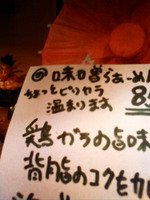 ◎味噌らぁーめん
ちょっとピリカラ
温まります 8
鶏ガラの旨味
背脂のコクをか